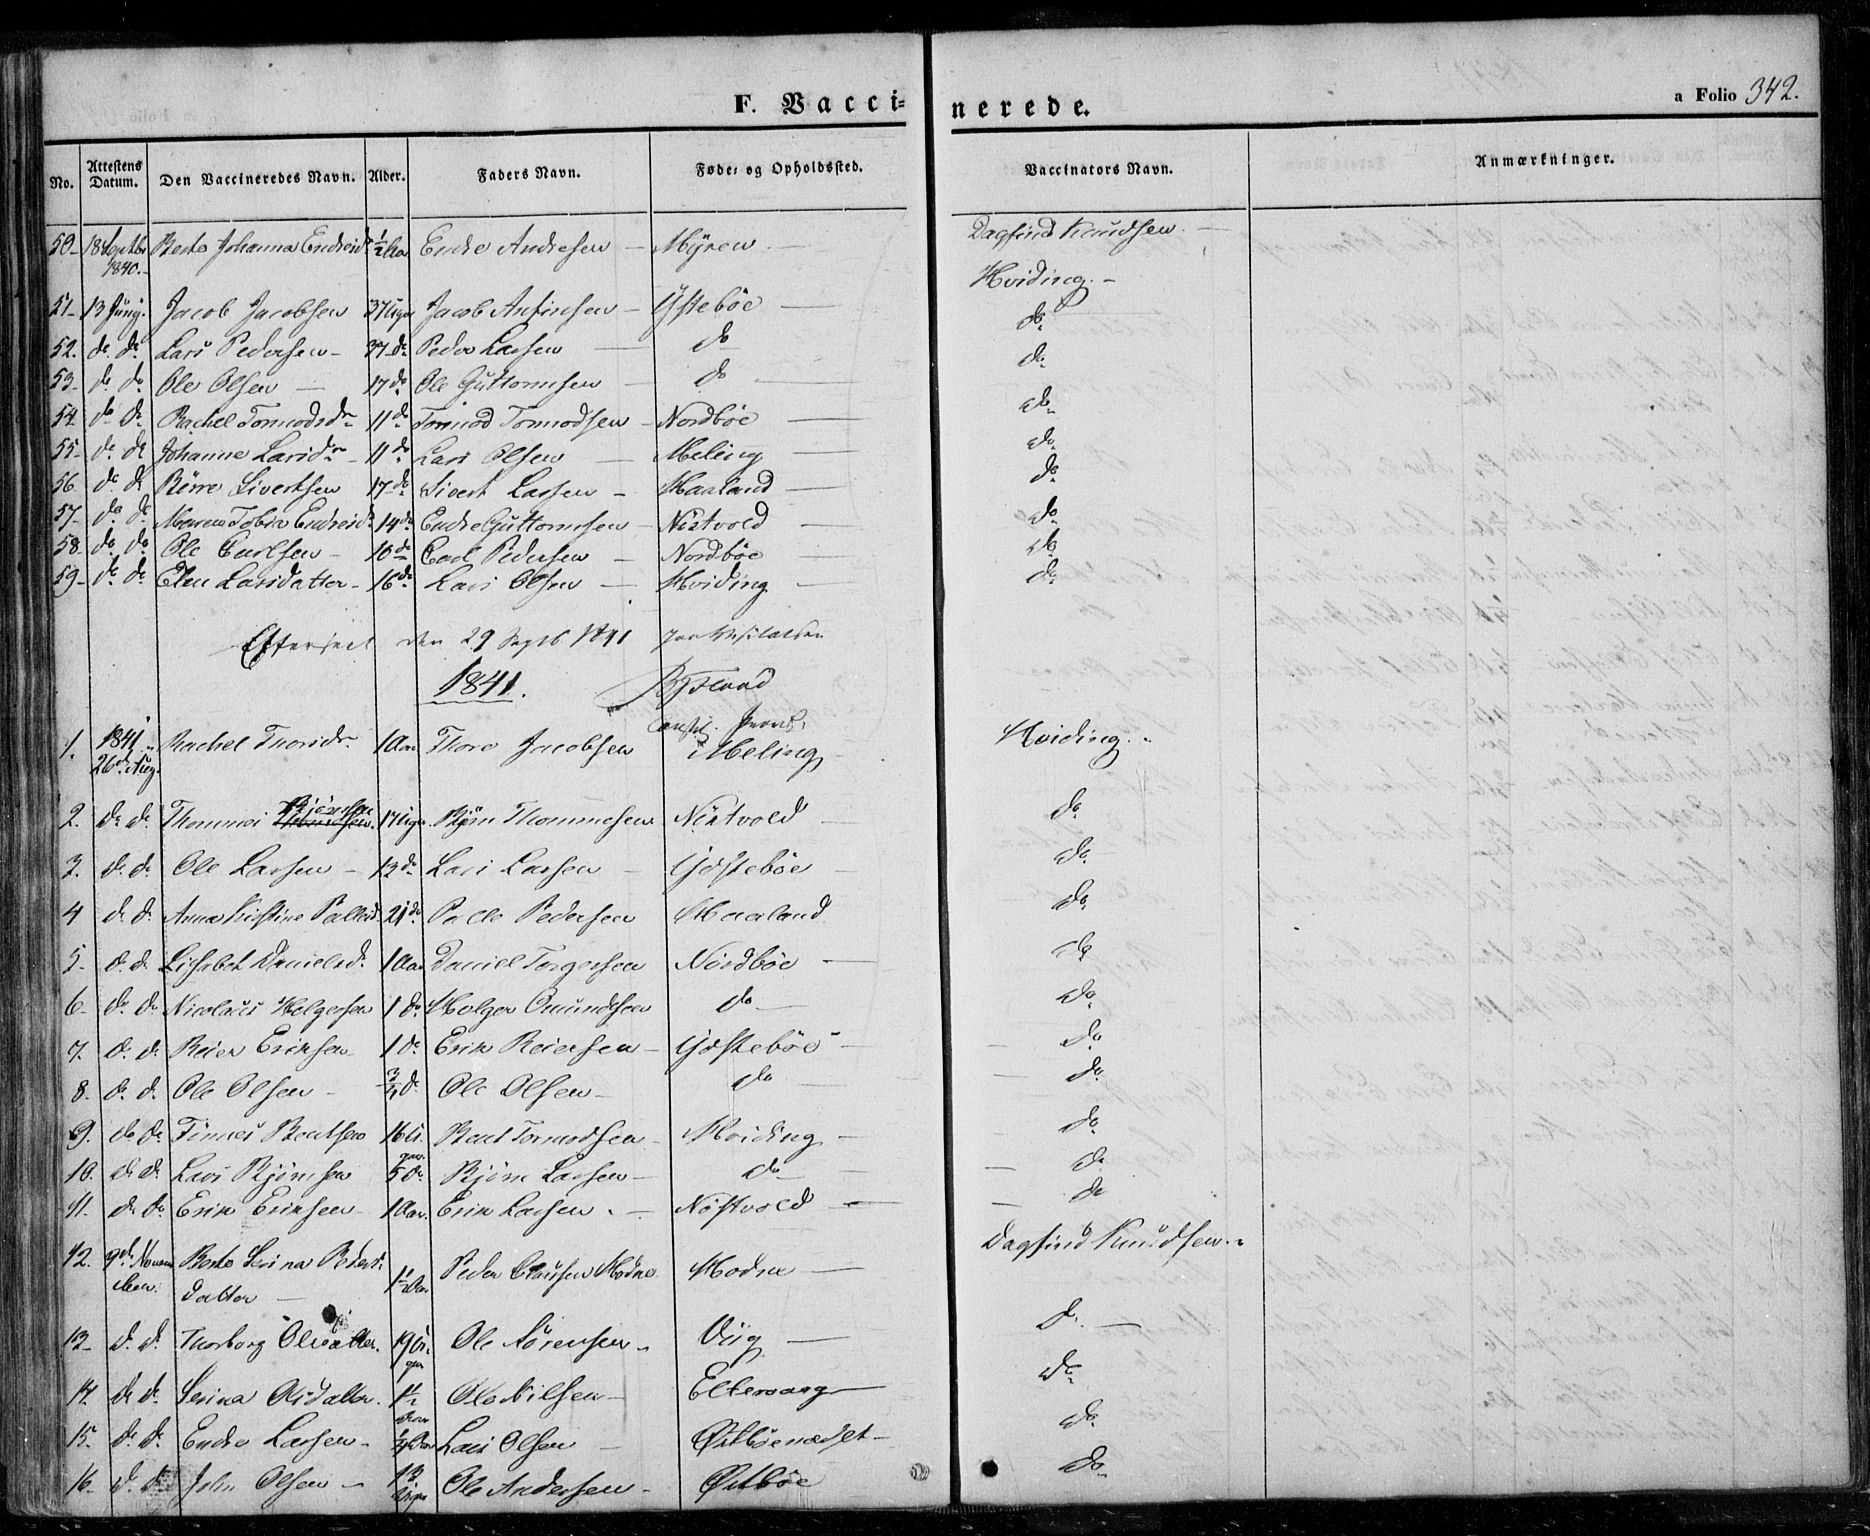 F. Vacci=
nerede.
a Folio 342.
No. Attestens Datum. Den Vaccineredes Navn. Alder. Faders Navn. Føde- og Opholdssted. Vaccinators Navn. Anmærkninger.
50 18 Septbr 1840. Berte Johanna Endresdr 1/2 Aar Endre Andresen Myren Dagfind Knudsen.
51 13 Junij. Jacob Jacobsen 37 Uger Jacob Anfinsen Ystebøe Hviding. do
52. do do Lars Pedersen 37 do Peder Larsen do do
53 do do Ole Olsen 17 do Ole Guttormsen do do
54 do do Rachel Tormodsdr 11 do Tormod Tormodsen Nordbøe do
55 do do Johanne Larsdr 11 do Lars Olsen Meling do
56 do do Børre Sivertsen 17 do Sivert Larsen Haaland do
57 do do Maren Tobia Endresdr 14 do Endre Guttormsen Nøstvold do
58 do do Ole Carlsen 10 do Carl Pedersen Nordbøe do
59 do do Elen Larsdatter 16 do Lars Olsen Hviding do
Efterseet den 29 Septb 1841 paa Visitatsen
1841.
Const. Provst
1. 1841 26de Aug. Rachel Thoresdr 1 Aar Thore Jacobsen Meling Hviding.
2. do do Thommas Bjørnsen 17 Uger Bjørn Thommesen Nøstvold do
3. do do Ole Larsen 13 do Lars Larsen Ydstebøe do
4 do do Anna Kristine Pallesd 21 do Palle Pedersen Haaland do
5 do do Lisabet Danielsd 1 Aar Daniel Torgersen Nordbøe do
6 do do Nicolaus Holgersen 1 do Holger Omundsen do do
7. do do Reier Eriksen 1 do Erik Reiersen Ydstebøe do
8. do do Ole Olsen 3/4 do Ole Olsen do do
9. do do Tønnes Bentsen 16 Uger Bent Tormodsen Hviding do
10. do do Lars Bjørnsen 5 do Bjørn Larsen do do
11. do do Erik Eriksen 1 Aar. Erik Larsen Nøstvold do
12. 9de November. Berte Serina Pedersdatter 1 1/2 Aar Peder Clausen Hodne Hodne Dagfind Knudsen
13 do do Thorborg Olsdatter 19 Uger Ole Sørensen Viig do
14. do do Serina Olsdatter 1 1/2 Aar Ole Nilsen Eltervaag do
15. do do Endre Larsen 1/4 Aar Lars Olsen Østbøenædset do
16. do do John Olsen 13 Uger Ole Andersen Østbøe do